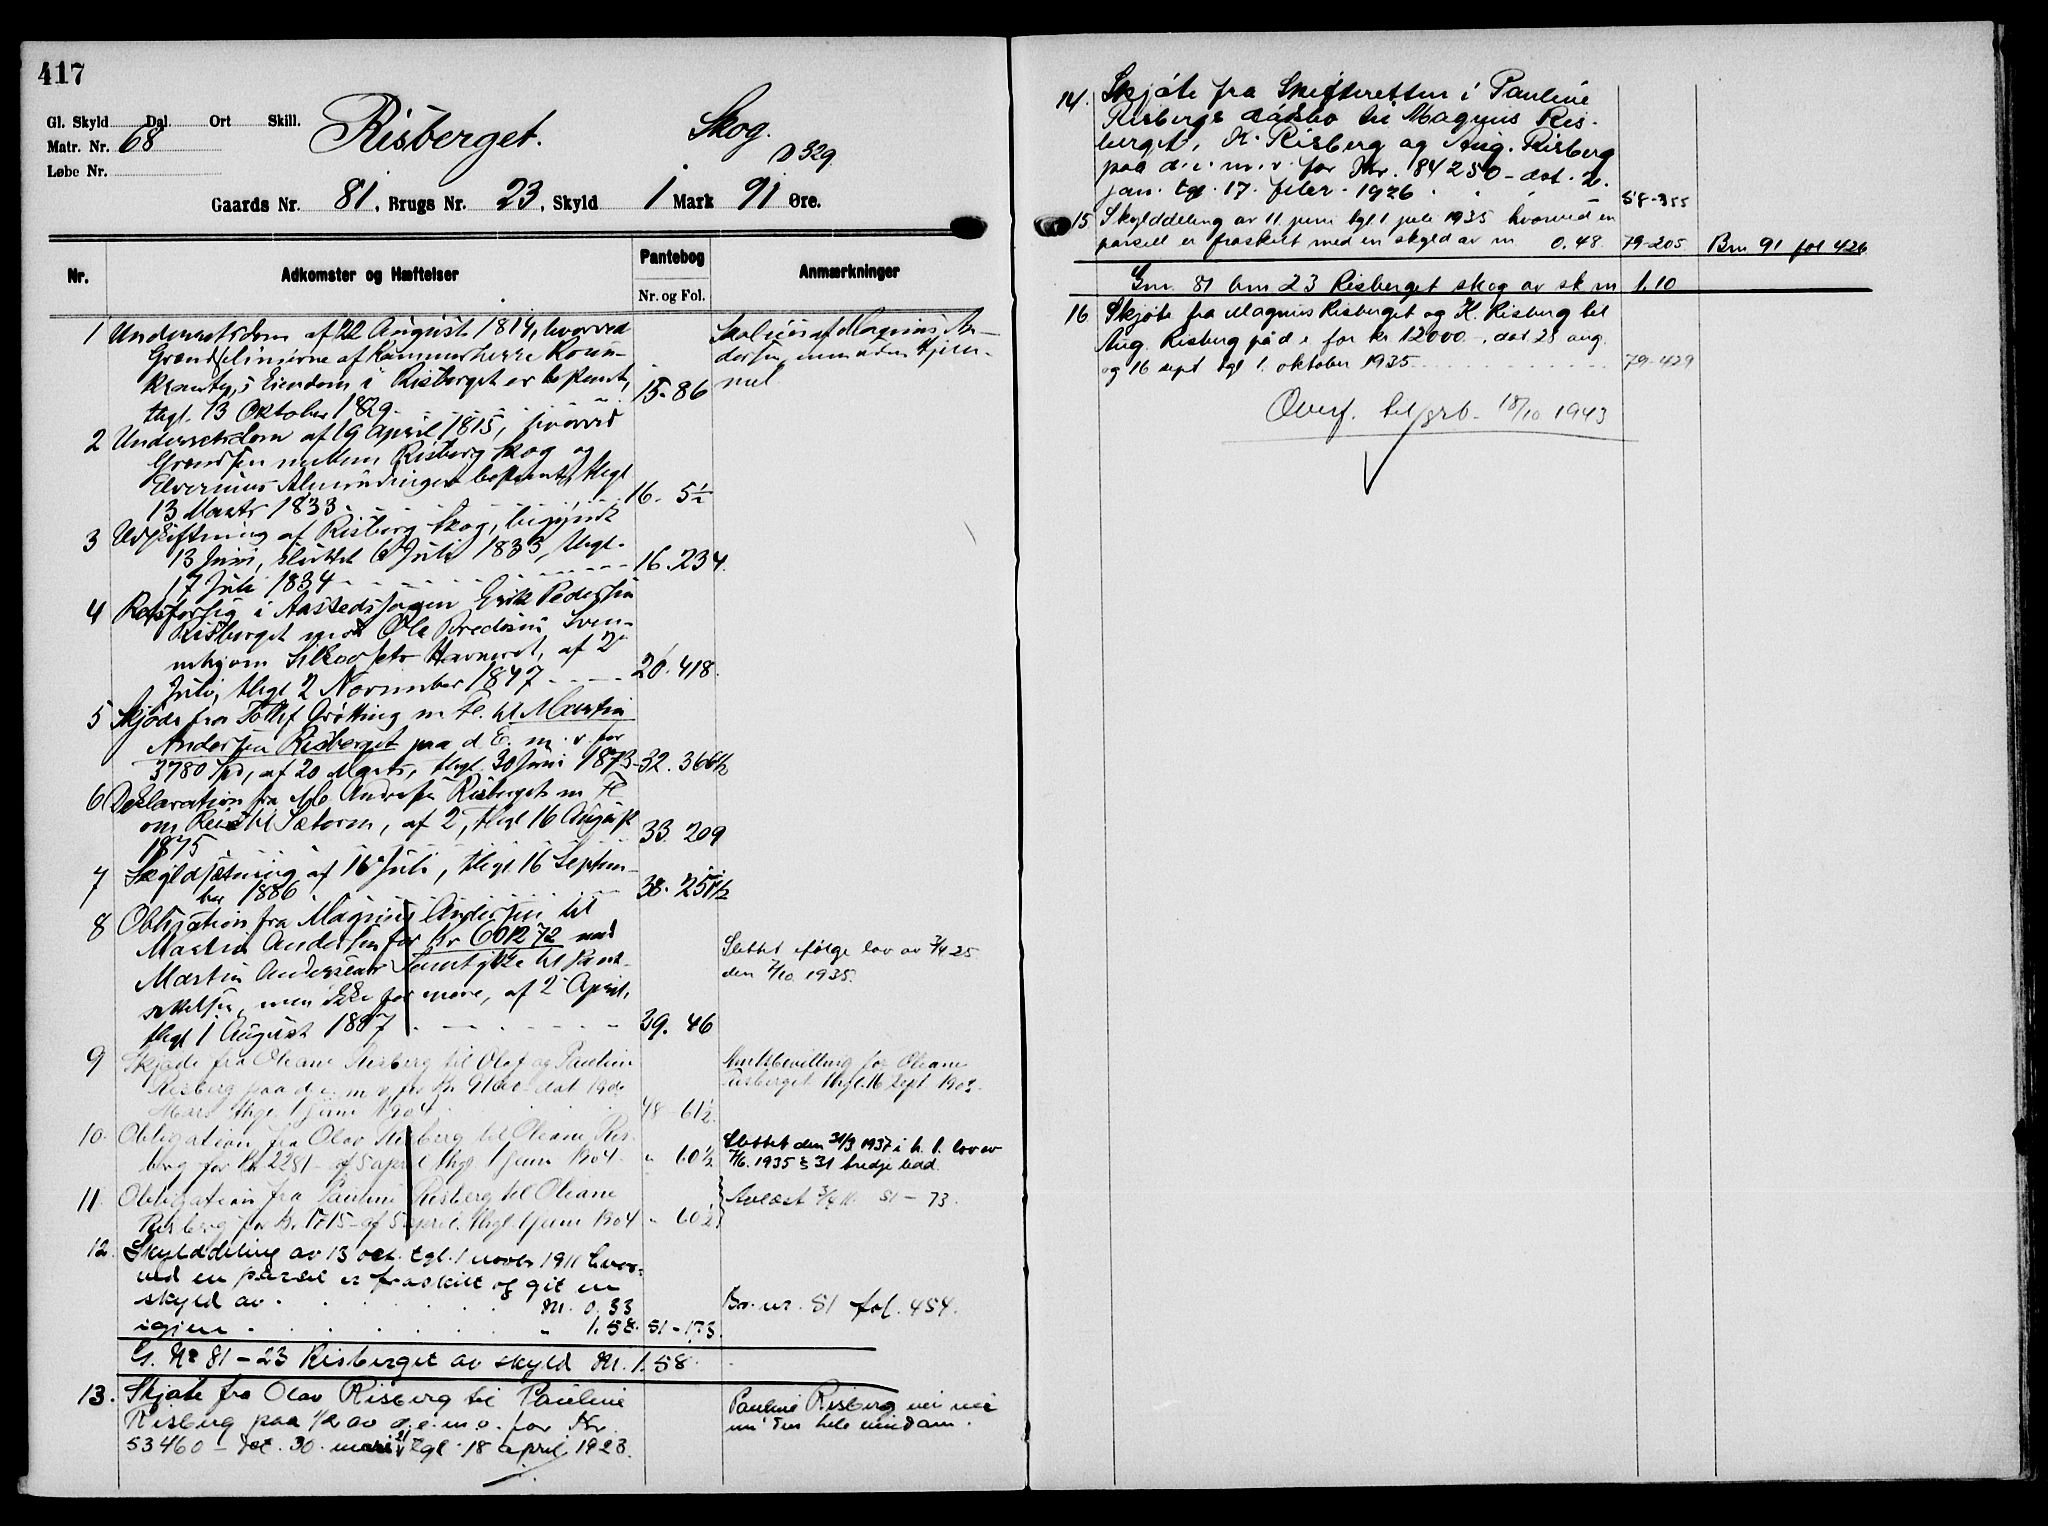 417
Gl. Skyld Dal. Ort Skill.
Matr. Nr. 68
Løbe Nr.
Risberget. Skog.
D 329
Gaards Nr. 81, Brugs Nr. 23, Skyld 1 Mark 91 Øre.
Nr. Adkomster og Hæftelser Pantebog Nr. og Fol. Anmærkninger
1 Underretsdom af 22 August 1814, hvorved
Grændselinierne af Kammerherre Rosen-
krantz's Eiendom i Risberget er bestemt,
thgl. 13 Oktober 1829. 15-86
Magnus An-
dersen
2 Underretsdom af 19 April 1815, hvorved
Grændsen mellem Risberg Skog og
Elverums Almindinger bestemt, thgl
13 Marts 1833 16. 5½
3 Udskiftning af Risberg Skog, begyndt
13 Juni, sluttet 6 Juli 1833, thgl.
17 Juli 1834 16.234.
4 Retsforlig i Aastedssagen Erik Pedersen
Risberget mod Ole Bredesen Sven-
Havneret, af 2
Juli, thgl 2 November 1847 20.418.
5 Skjøde fra Tollef Grøtting m Fl. til Martin
Andersen Risberget paa d. E. m. v. for
3780 Spd, af 20 Marts, thgl. 30 Juni 1873 32. 366½
6 Deklaration fra M. Andersen Risberget m Fl
om Sæteren, af 2, thgl 16 August
1875 33. 209
7 Skyldsætning af 16 Juli, thgl 16 Septem-
ber 1886 38. 257½
8 Obligation fra Magnus Andersen til
Martin Andersen for Kr 6012 72 med
Martin Andersens Samtykke til Pant-
settelsen, men ikke for mere, af 2 April,
thgl 1 August 1887 39. 46
Slettet ifølge lov av 7/4 25
den 7/10 1935.
9 Skjøde fra Oleane Risberg til Olaf og Pauline
Risberg paa d. e. m. v. for Kr dat
Mars thgl. 1 juni 1904 48 61½
Amtsbevilling for Oleane
Risberget thgl. 16 Sept.
10. Obligation fra Olav Risberg til Oleane Ris-
berg for Kr. 2251- af 5 april thgl. 1 juni 1904 " 60½
Slettet den 31/3 1937 i h. t. lov av
7/6. 1935 § 31 tredje ledd.
11. Obligation fra Pauline Risberg til Oleane
Risberg for Kr. af 5 april. thgl. 1 juni 1904 " 60½
Avlæst 51 - 73.
12. Skylddeling av 13 oct. tgl. 1 novbr 1911 hvor-
ved en parsel er fraskilt og git en
skyld av M. 0.33 Br. nr. 51 fol. 454.
igjen " 1.58. 51-173.
G. Nr 81-23 Risberget av skyld M. 1.58.
13. Skjøte fra Olav Risberg til Pauline
Risberg paa ½ av d. e. m. v. for Kr
53460 - dat. 30. mars 21 tgl. 18 april 1923.
Pauline Risberg
den hele eiendom.
14. Skjøte fra Skifteretten i Pauline
Risbergs dødsbo til Magnus Ris-
berget, K. Risberg og Aug. Risberg
paa d. e. m. v. for Kr. 84250 - dat. 2.
jan. tgl. 17. febr. 1926 58-355
15 Skylddeling av 11 juni tgl 1 juli 1935 hvorved en
parsell er fraskilt med en skyld av m 0.48. 79-205 Bnr 91 fol 426
Gnr. 81 bnr 23 Risberget skog av sk m 1.10
16 Skjøte fra Magnus Risberget og K. Risberg til
Aug. Risberg på d e for kr. 12000 -, dat 23 aug.
og 16 sept tgl 1. oktober 1935 79-429
Overf. til grb. 18/10 1943